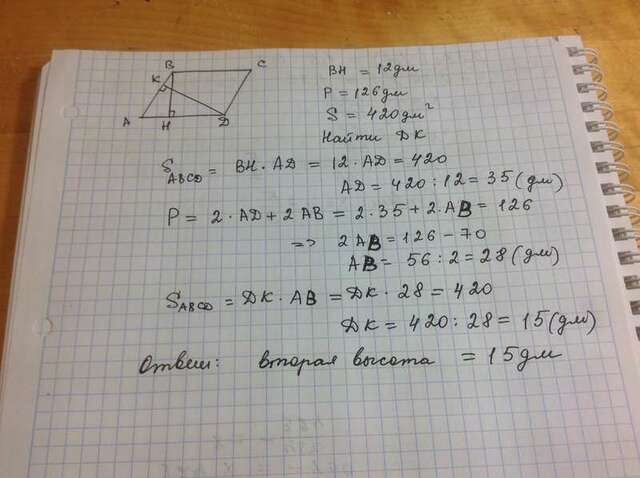 B C
K
A H D
BH = 12 дм
P = 126 дм
S = 420 дм²
Найти DK
S ABCD = BH · AD = 12 · AD = 420
AD = 420 : 12 = 35 (дм)
P = 2 · AD + 2 AB = 2 · 35 + 2 · AB = 126
=> 2 AB = 126 - 70
AB = 56 : 2 = 28 (дм)
S ABCD = DK · AB = DK · 28 = 420
DK = 420 : 28 = 15 (дм)
Ответ: вторая высота = 15 дм